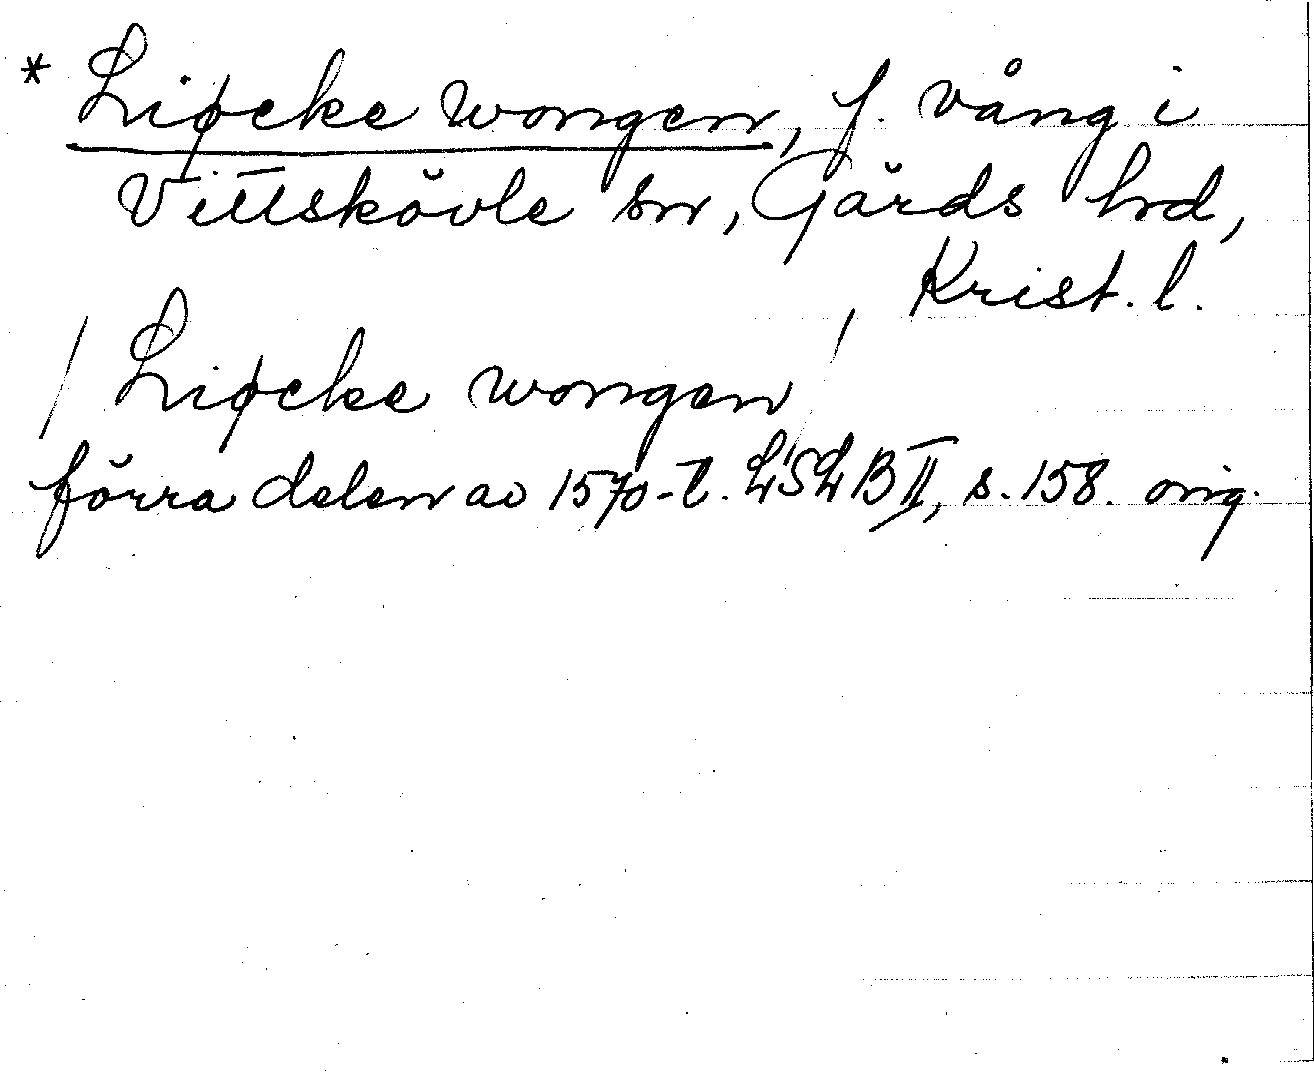 * Liøcke wongen, f. vång i
Vittskövle sn, Gärds hrd,
Krist. l.
/ Liøcke wongen /
förra delen av 1570-t. LSLB II, s. 158. orig.